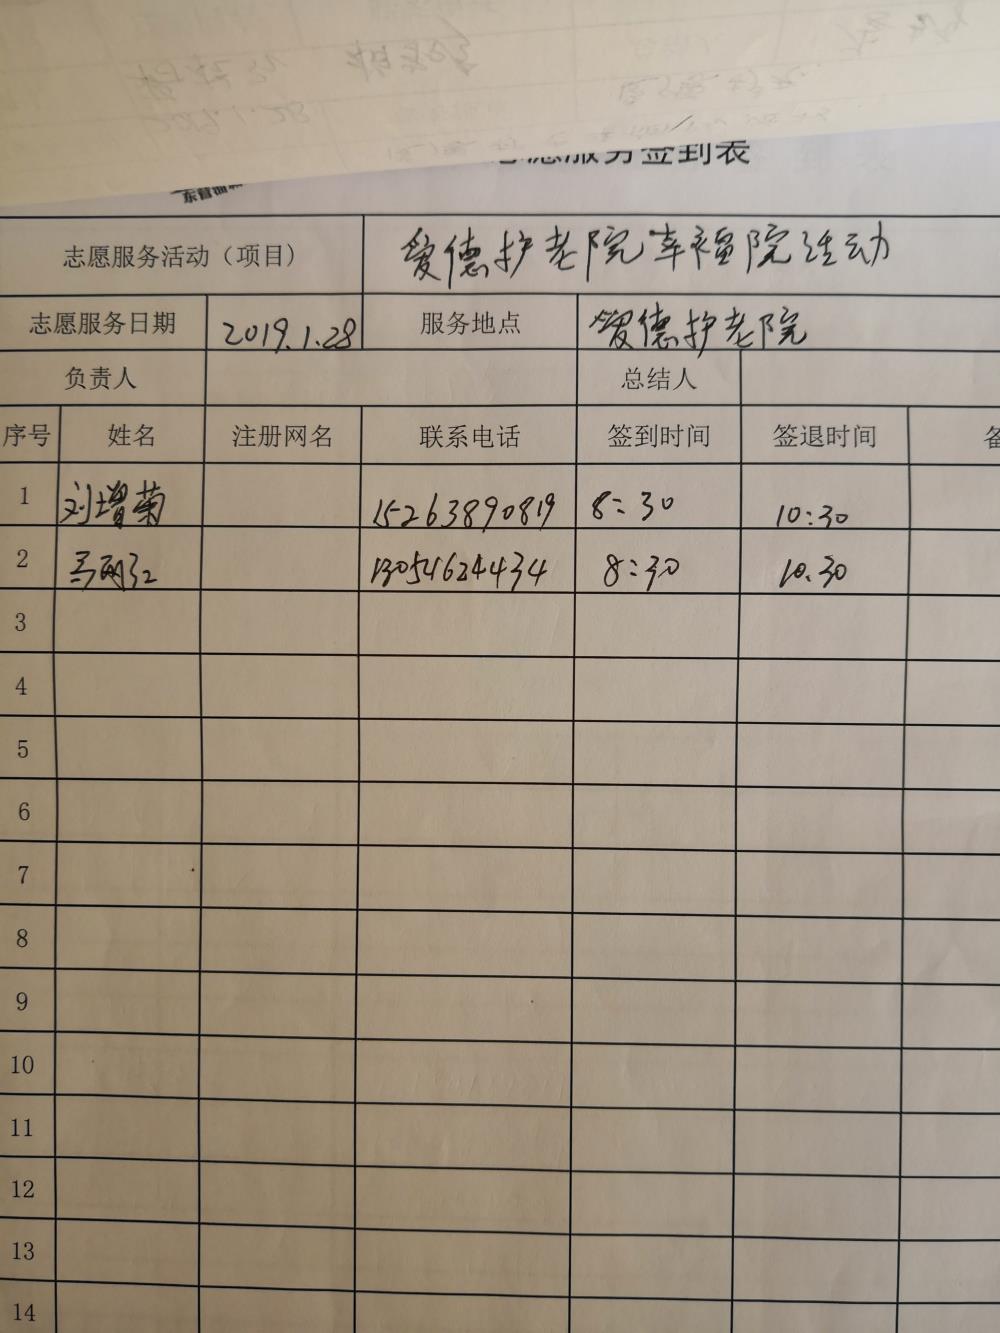 志愿服务签到表
志愿服务活动（项目） 爱德护老院幸福院活动
志愿服务日期 2019.1.28 服务地点 爱德护老院
负责人 总结人
序号 姓名 注册网名 联系电话 签到时间 签退时间
1 刘增菊 15263890819 8:30 10:30
2 马丽红 13054624434 8:30 10.30
3
4
5
6
7
8
9
10
11
12
13
14